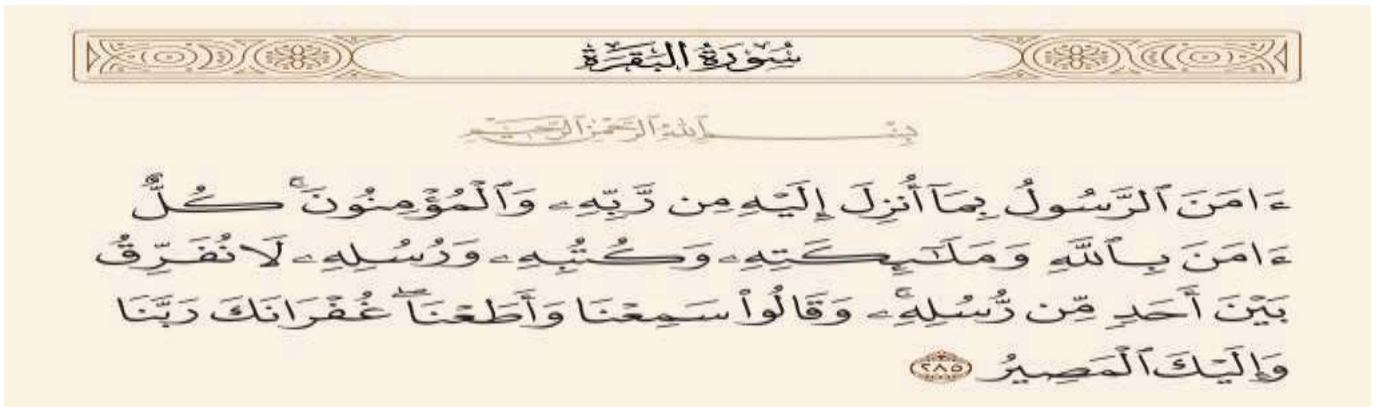 سُورَةُ البَقَرَةِ
بِسْمِ اللَّهِ الرَّحْمَٰنِ الرَّحِيمِ
ءَامَنَ ٱلرَّسُولُ بِمَآ أُنزِلَ إِلَيْهِ مِن رَّبِّهِۦ وَٱلْمُؤْمِنُونَ ۚ كُلٌّ
ءَامَنَ بِٱللَّهِ وَمَلَـٰٓئِكَتِهِۦ وَكُتُبِهِۦ وَرُسُلِهِۦ لَا نُفَرِّقُ
بَيْنَ أَحَدٍ مِّن رُّسُلِهِۦ ۚ وَقَالُوا۟ سَمِعْنَا وَأَطَعْنَا ۖ غُفْرَانَكَ رَبَّنَا
وَإِلَيْكَ ٱلْمَصِيرُ ٢٨٥